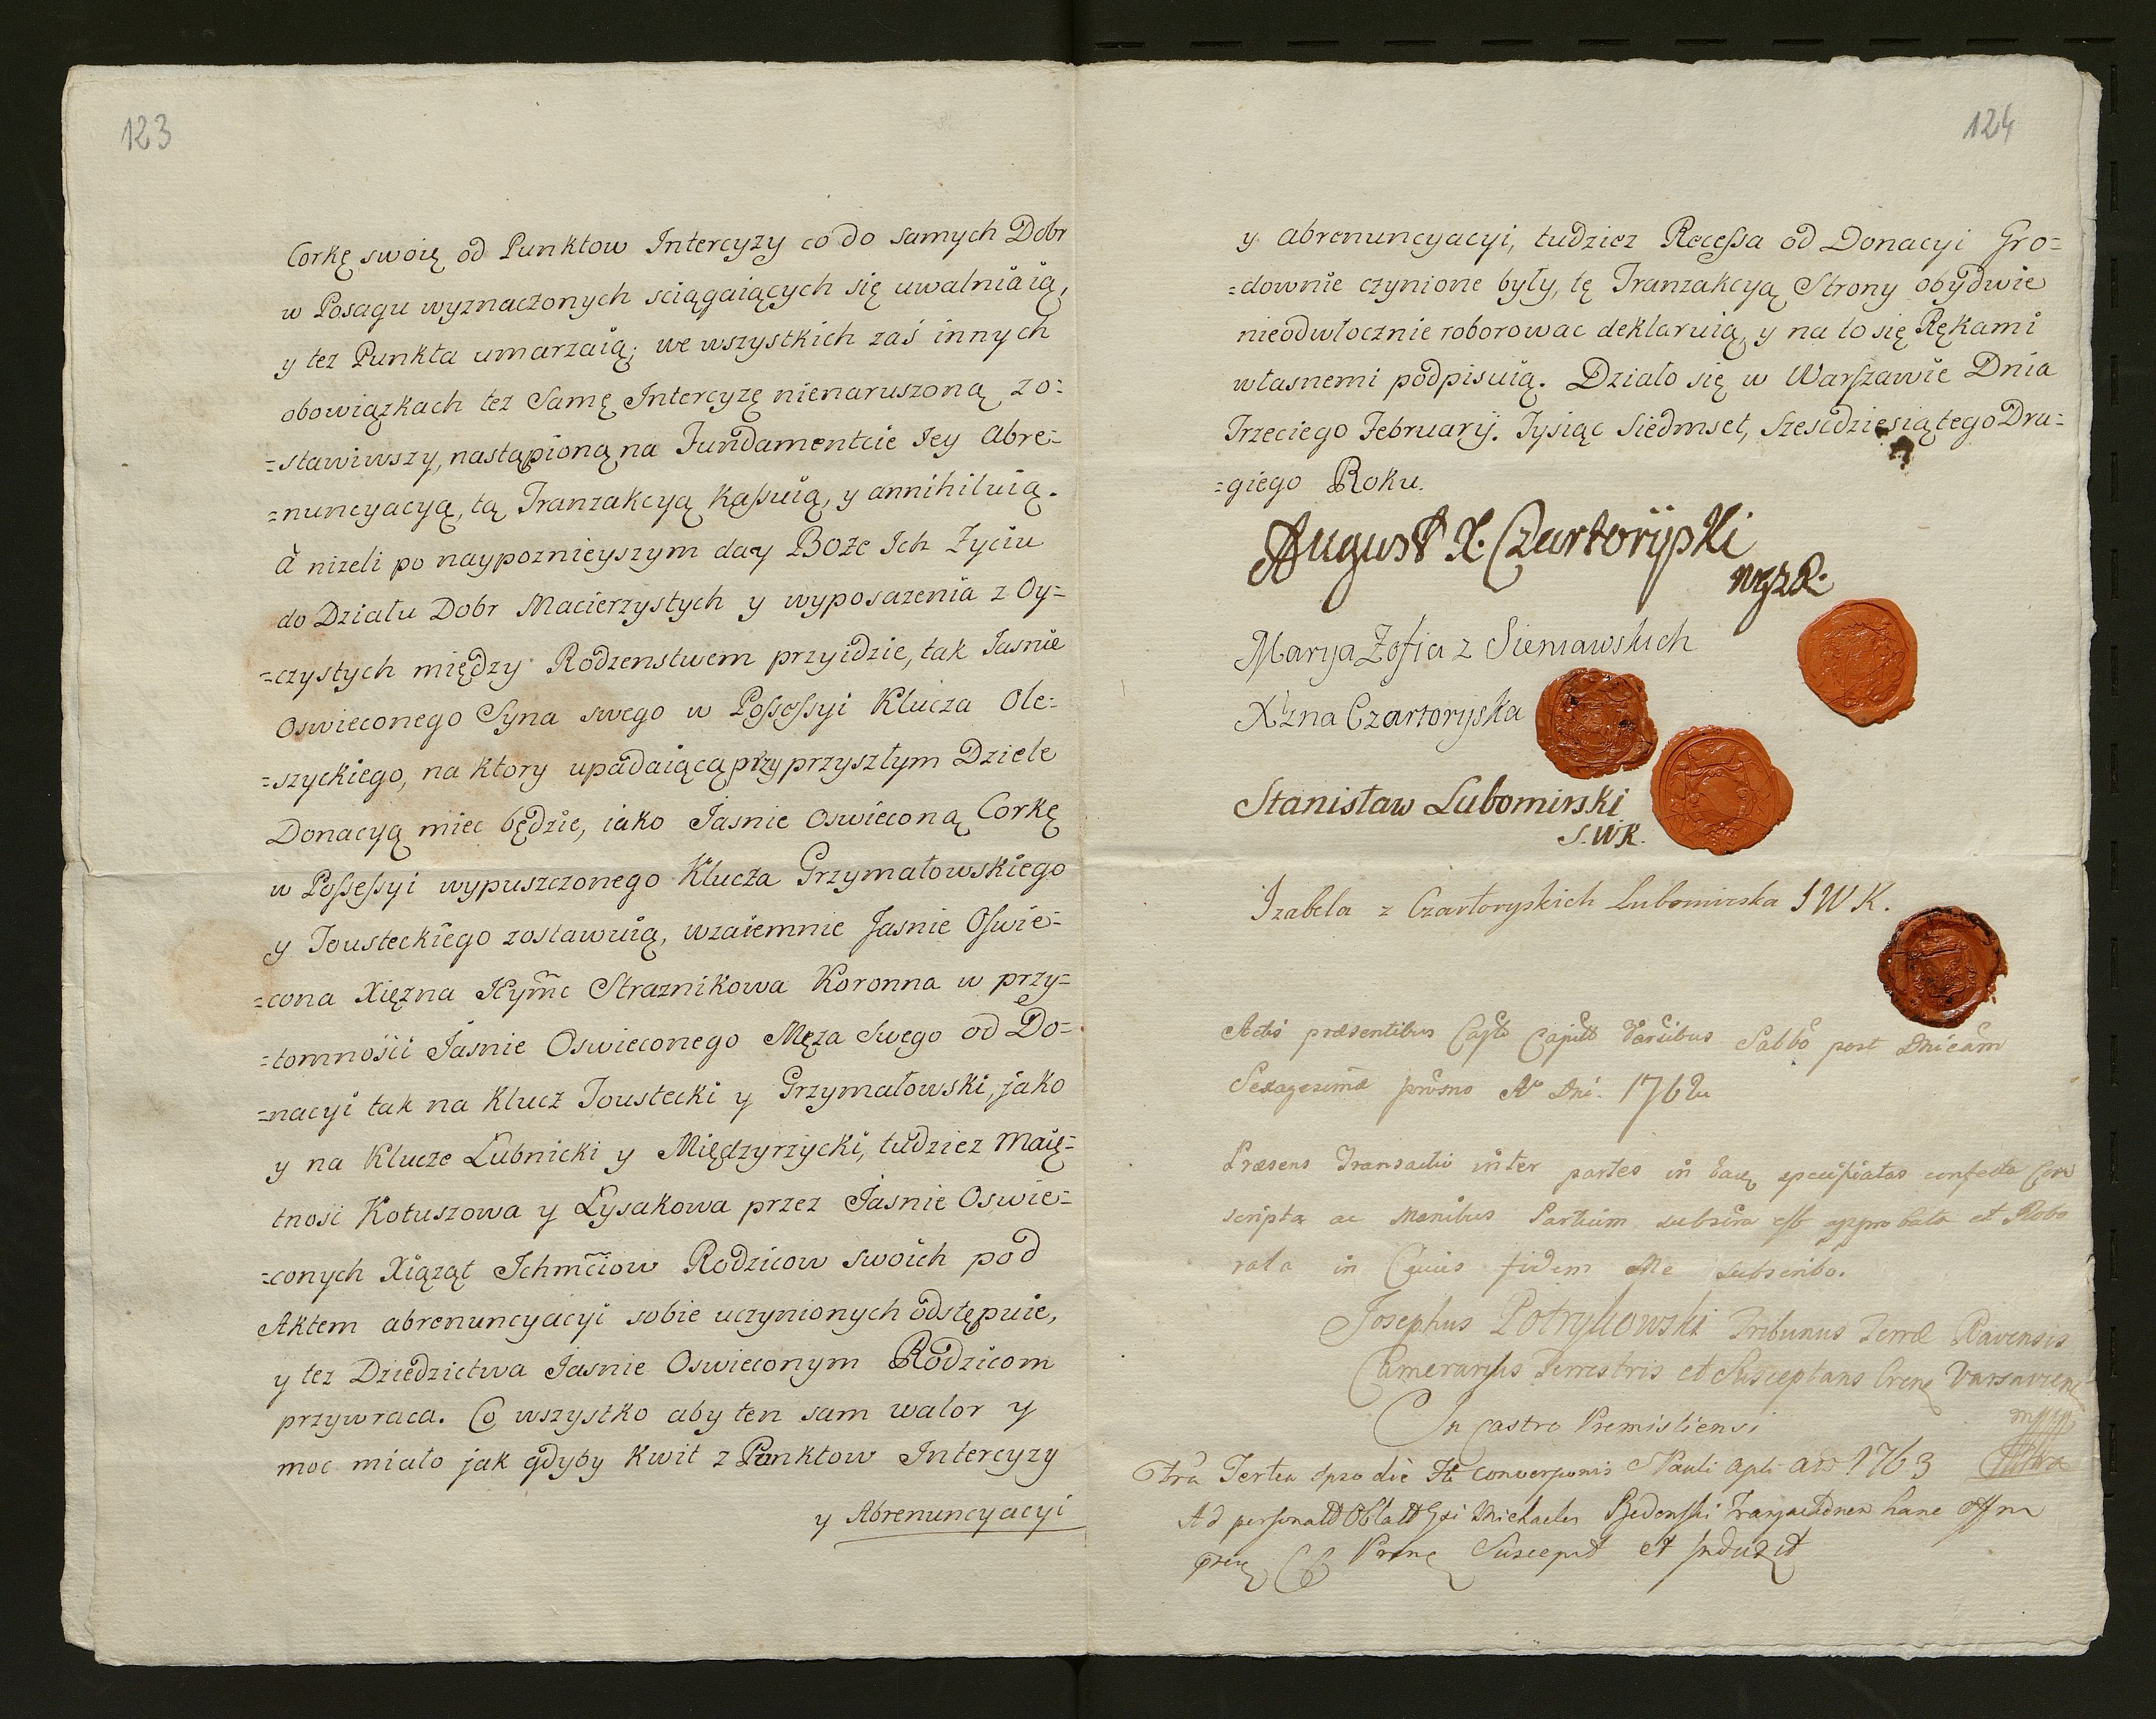 123
Corkę swoię od Punktow Intercyzy co do samych Dobr
w Posagu wyznaczonych sciągaiących się uwalniaią,
y tez Punkta umarzaią; we wszystkich zaś innych
obowiązkach tez Samę Intercyzę nienaruszoną zo=
=stawiwszy, nastąpioną na Fundamentcie Jey Abre=
=nuncyacyą, tą Tranzakcyą Kassuią, y annihiluią.
A nizeli po naypoznieyszym day Boze Ich Zyciu
do Działu Dobr Macierzystych y wyposazenia z Oy=
=czystych między Rodzenstwem przyidzie, tak Jasnie
Oswieconego Syna swego w Possessyi Klucza Ole=
=szyckiego, na ktory upadaiącą przy przyszłym Dziele
Donacyą miec będzie, iako Jasnie Oswieconą Corkę
w Possessyi wypuszczonego Klucza Grzymałowskiego
y Tousteckiego zostawuią, wzaiemnie Jasnie Oswie=
=cona Xięzna Jeymc Straznikowa Koronna w przy=
=tomności Jasnie Oswieconego Męza Swego od Do=
=nacyi tak na Klucz Toustecki y Grzymałowski, jako
y na Klucze Lubnicki y Międzyrzycki, tudziez Maię=
tnosi Kotuszowa y Łysakowa przez Jasnie Oswie=
=conych Xiąząt Ichmciow Rodzicow swoich pod
Aktem abrenuncyacyi sobie uczynionych odstępuie,
y tez Dziedzictwa Jasnie Oswieconym Rodzicom
przywraca. Co wszystko aby ten sam walor y
moc miało jak gdyby Kwit z Punktow Intercyzy
y Abrenuncyacyi
124
y abrenuncyacyi, tudziez Recessa od Donacyi Gro=
=downie czynione były, tę Tranzakcyą Strony obydwie
nieodwłocznie roborowac deklaruią, y na to się Rękami
własnemi podpisuią. Działo się w Warszawie Dnia
Trzeciego February. Tysiąc Siedmset, Szescdziesiątego Dru=
=giego Roku.
August X. Czartoryski
Marya Zofia z Sieniawskich
Xzna Czartoryska
Stanisław Lubomirski
S.W.K.
Izabela z Czartoryskich Lubomirska S W K.
Actis præsentibus Castr Capitt Varsibus Sabbo post Dnicam
Sexagesimæ proxmo Ao Dni. 1762
Præsens Transactio inter partes in Eaq specifiatas confecta Con
scripta ac Manibus Partium subscra est approbata et Robo
rata in Cujus fidem Me subscribo.
Josephus Potrykowski Tribunus Terræ Ravensis
Camerarius Terrestris et Susceptans Crens Varsaviens
mpp
In Castro Premisliensi
Fria Tertia ipso die Fti Conversionis S Pauli Apli Ao 1763
Ad personal Oblat Gsi Michaelis Transactionem hanc Offm
Præns Suscepit et Induxit